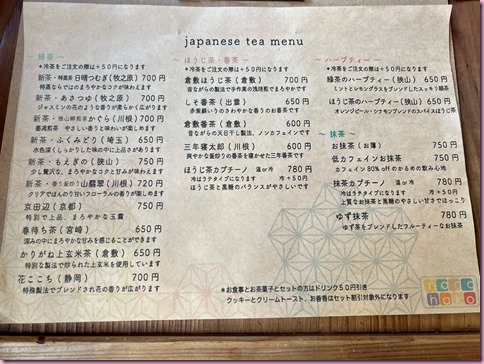 japanese tea menu
～ 緑茶 ～
*冷茶をご注文の際は+50円になります
新茶・特蒸茶 日晴つむぎ(牧之原) 700 円
特蒸ならではのまろやかなコクが味わえます
新茶・あさつゆ(牧之原) 700 円
ジャスミンの花のような香りが柔らかく広がります
かぐら(川根) 700 円
やさしい香りと味わいが楽しめます
新茶・ふくみどり(埼玉) 650 円
水色深くしっかりした味の中に上品さがあります
新茶・もえぎの(狭山) 750 円
少し贅沢な、まろやかなコクと甘みが味わえます
新茶・香り釜炒り 山翡翠(川根) 720 円
クリアでほんのり甘いフローラルの香りが愉しめます
京田辺(京都) 750 円
特別で上品、まろやかな玉露
春待ち茶(宮崎) 650 円
深みの中にまろやかな甘みを感じることができます
かりがね上玄米茶(倉敷) 650 円
特別な製法で炒られた上玄米を使用しています
花ここち(静岡) 700 円
特殊製法でブレンドされ花の香りが広がります
～ ほうじ茶・番茶 ～
*冷茶をご注文の際は+50円になります
倉敷ほうじ茶(倉敷) 700 円
昔ながらの製法で手作業の浅焙煎でまろやかです
しそ番茶(出雲) 650 円
赤紫蘇いりのさわやかな香りのお番茶です
倉敷番茶(倉敷) 600 円
昔ながらの天日干し製法、ノンカフェインです
三年寝太郎(川根) 600 円
爽やかな釜炒りの番茶を寝かせた三年番茶です
ほうじ茶カプチーノ 温or冷 780 円
冷はラテタイプになります 冷+50円
ほうじ茶と黒糖のバランスがやさしいです
～ ハーブティー ～
*冷茶をご注文の際は+50円になります
緑茶のハーブティー(狭山) 650 円
ミントとレモングラスをブレンドしたスッキリ緑茶
ほうじ茶のハーブティー(狭山) 650 円
オレンジピールとシナモンブレンドのスパイスほうじ茶
～ 抹茶 ～
お抹茶(お薄) 750 円
低カフェインお抹茶 750 円
カフェイン 80% off のからだの飲み心地
抹茶カプチーノ 温or冷 780 円
冷はラテタイプになります 冷+50円
上質なお抹茶と黒糖のやさしい甘さでほっこり
ゆず抹茶 780 円
ゆず茶をブレンドしたフルーティーなお抹茶
*お食事とお茶菓子とセットの方はドリンク50円引き
クッキーとクリームトースト、お番香はセット割引対象外になります
naga
holo